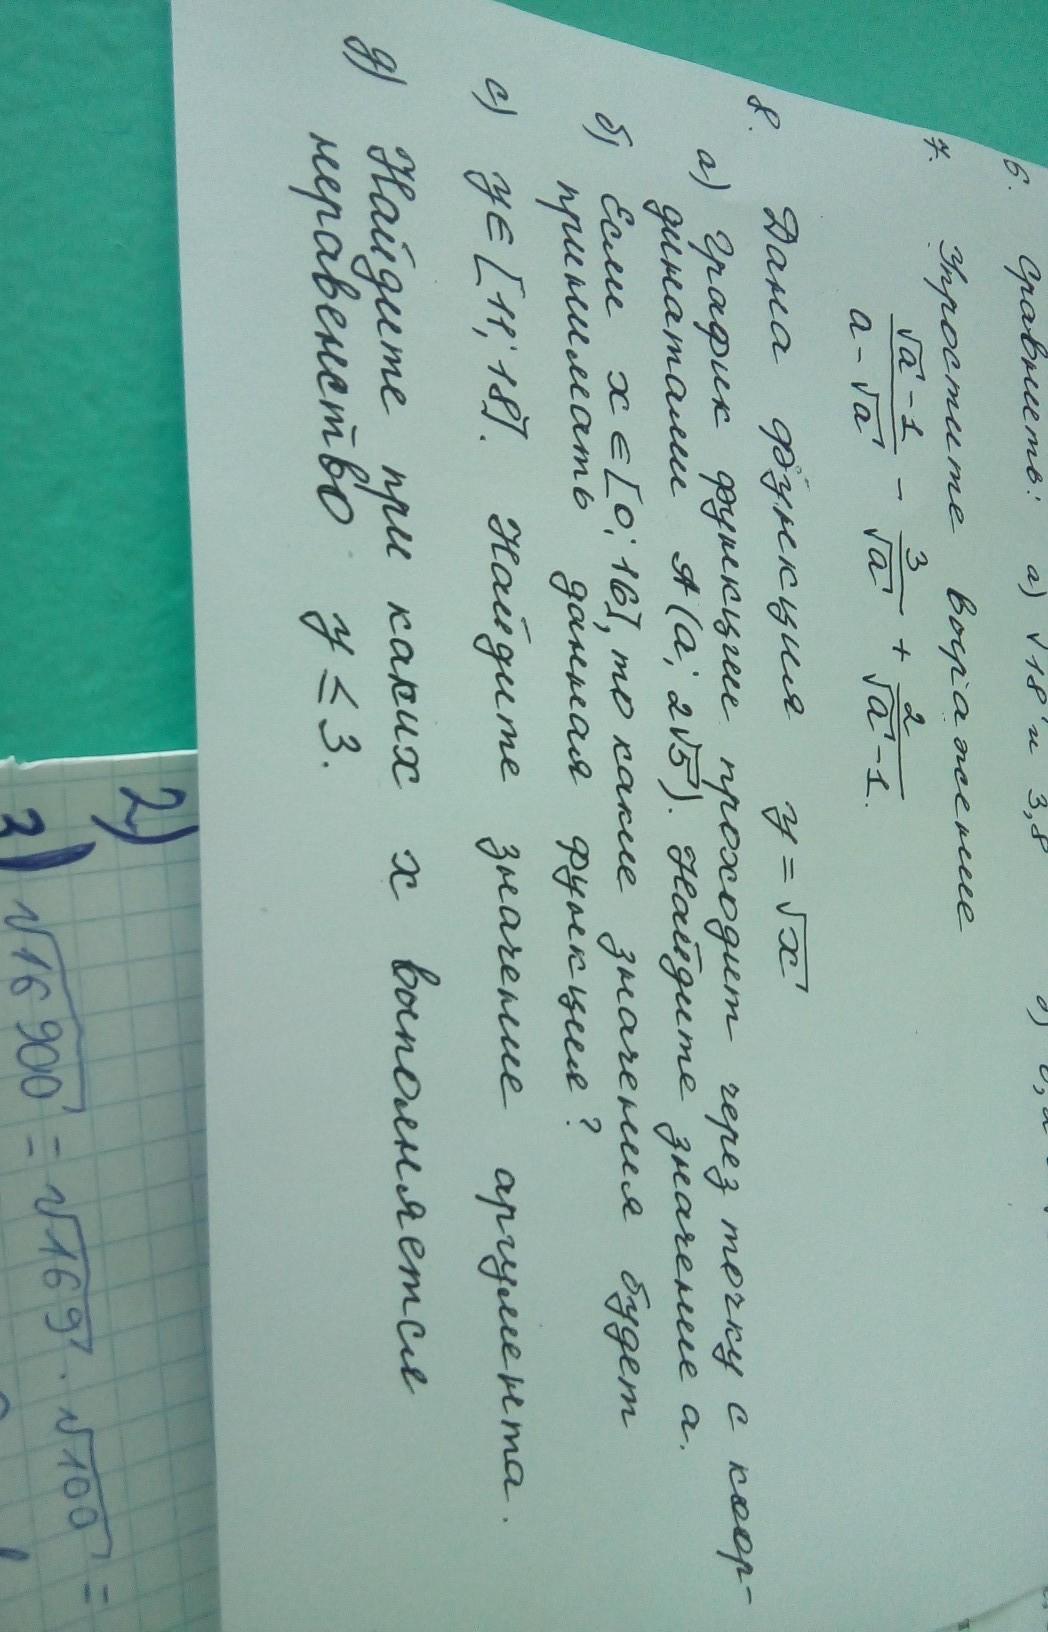 6. Сравнить: а) √18 и 3,8
7. Упростите выражение
(√a - 1)/(a - √a) - 3/√a + 2/(√a - 1).
8. Дана функция y = √x
а) График функции проходит через точку с коор-
динатами А(а; 2√5). Найдите значение а.
б) Если x ∈ [0; 16], то какие значения будет
принимать данная функция?
с) y ∈ [11; 18]. Найдите значение аргумента.
д) Найдите при каких х выполняется
неравенство y ≤ 3.
2)
3) √16900 = √169 · √100 =